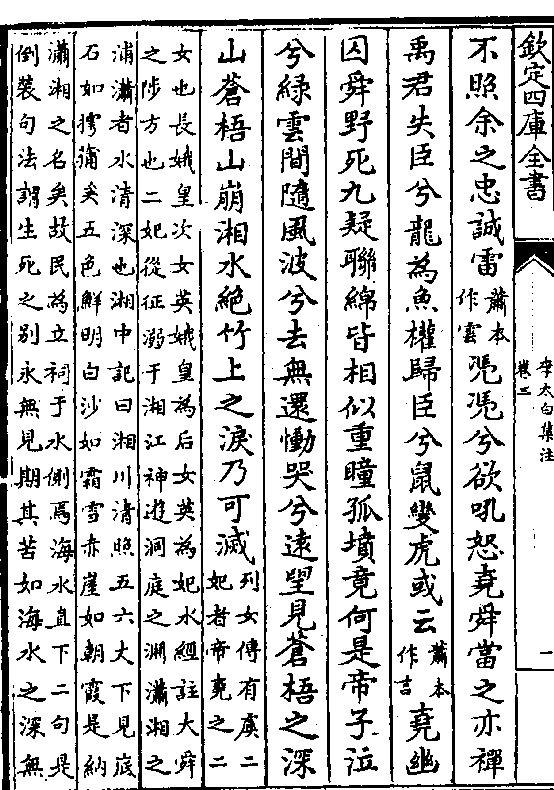 欽定四庫全書
李太白集注
卷三
一
不照余之忠誠雷蕭本作雲憑憑兮欲吼怒堯舜當之亦禪
禹君失臣兮龍為魚權歸臣兮鼠變虎或云蕭本作言堯幽
囚舜野死九疑聯綿皆相似重瞳孤墳竟何是帝子泣
兮綠雲間隨風波兮去無還慟哭兮遠望見蒼梧之深
山蒼梧山崩湘水絶竹上之淚乃可滅列女傳有虞二妃者帝堯之二
女也長娥皇次女英娥皇為后女英為妃水經註大舜
之陟方也二妃從征溺于湘江神遊洞庭之淵瀟湘之
浦瀟者水清深也湘中記曰湘川清照五六丈下見底
石如摴蒲矣五色鮮明白沙如霜雪赤崖如朝霞是納
瀟湘之名矣故民為立祠于水側焉海水直下二句是
倒裝句法謂生死之別永無見期其苦如海水之深無